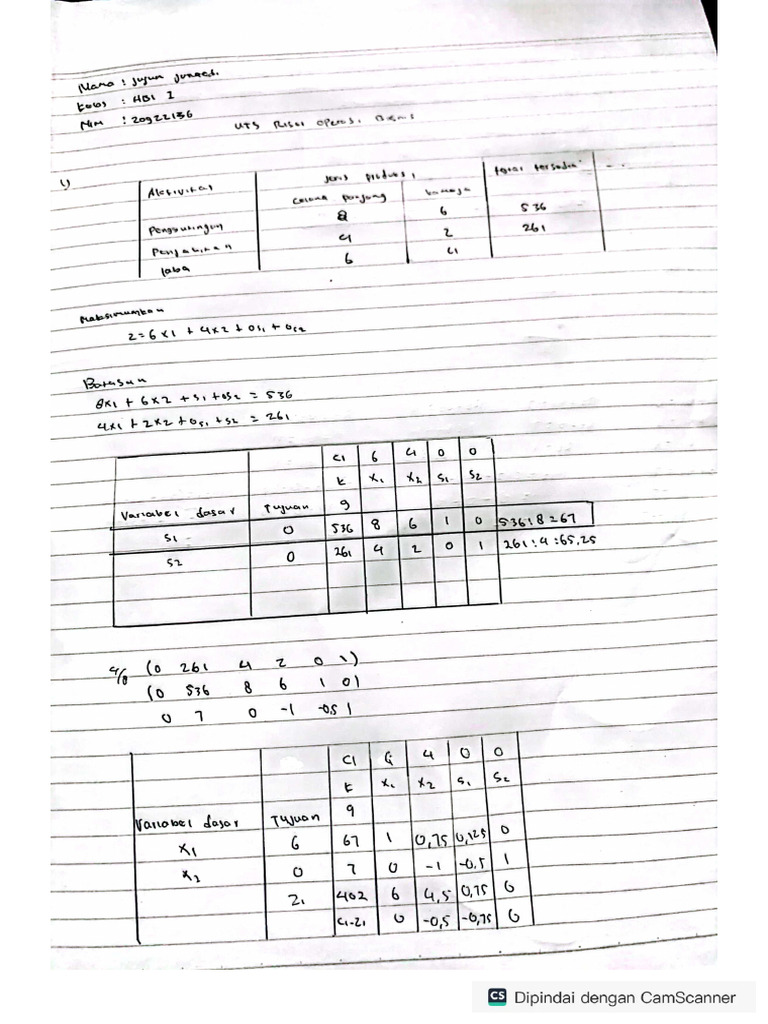 Nama : Jujun Junaedi.
Kelas : HBI I
Nim : 20922136
UTS Riset Operasi Bisnis
1)
Aktivitas Jenis produksi total tersedia
celana panjang kemeja
Pengguntingan 8 6 536
Penjahitan 4 2 261
laba 6 4
Maksimumkan
Z = 6x1 + 4x2 + 0s1 + 0s2
Batasan
8x1 + 6x2 + s1 + 0s2 = 536
4x1 + 2x2 + 0s1 + s2 = 261
C1 6 4 0 0
k x1 x2 s1 s2
Variabel dasar Tujuan 9
S1 0 536 8 6 1 0 536:8=67
S2 0 261 4 2 0 1 261:4:65,25
4/8 (0 261 4 2 0 1)
(0 536 8 6 1 0)
0 7 0 -1 -0,5 1
C1 6 4 0 0
k x1 x2 s1 s2
Variabel dasar Tujuan 9
x1 6 67 1 0,75 0,125 0
x2 0 7 0 -1 -0,5 1
Z1 402 6 4,5 0,75 0
C1-Z1 0 -0,5 -0,75 0
CS Dipindai dengan CamScanner